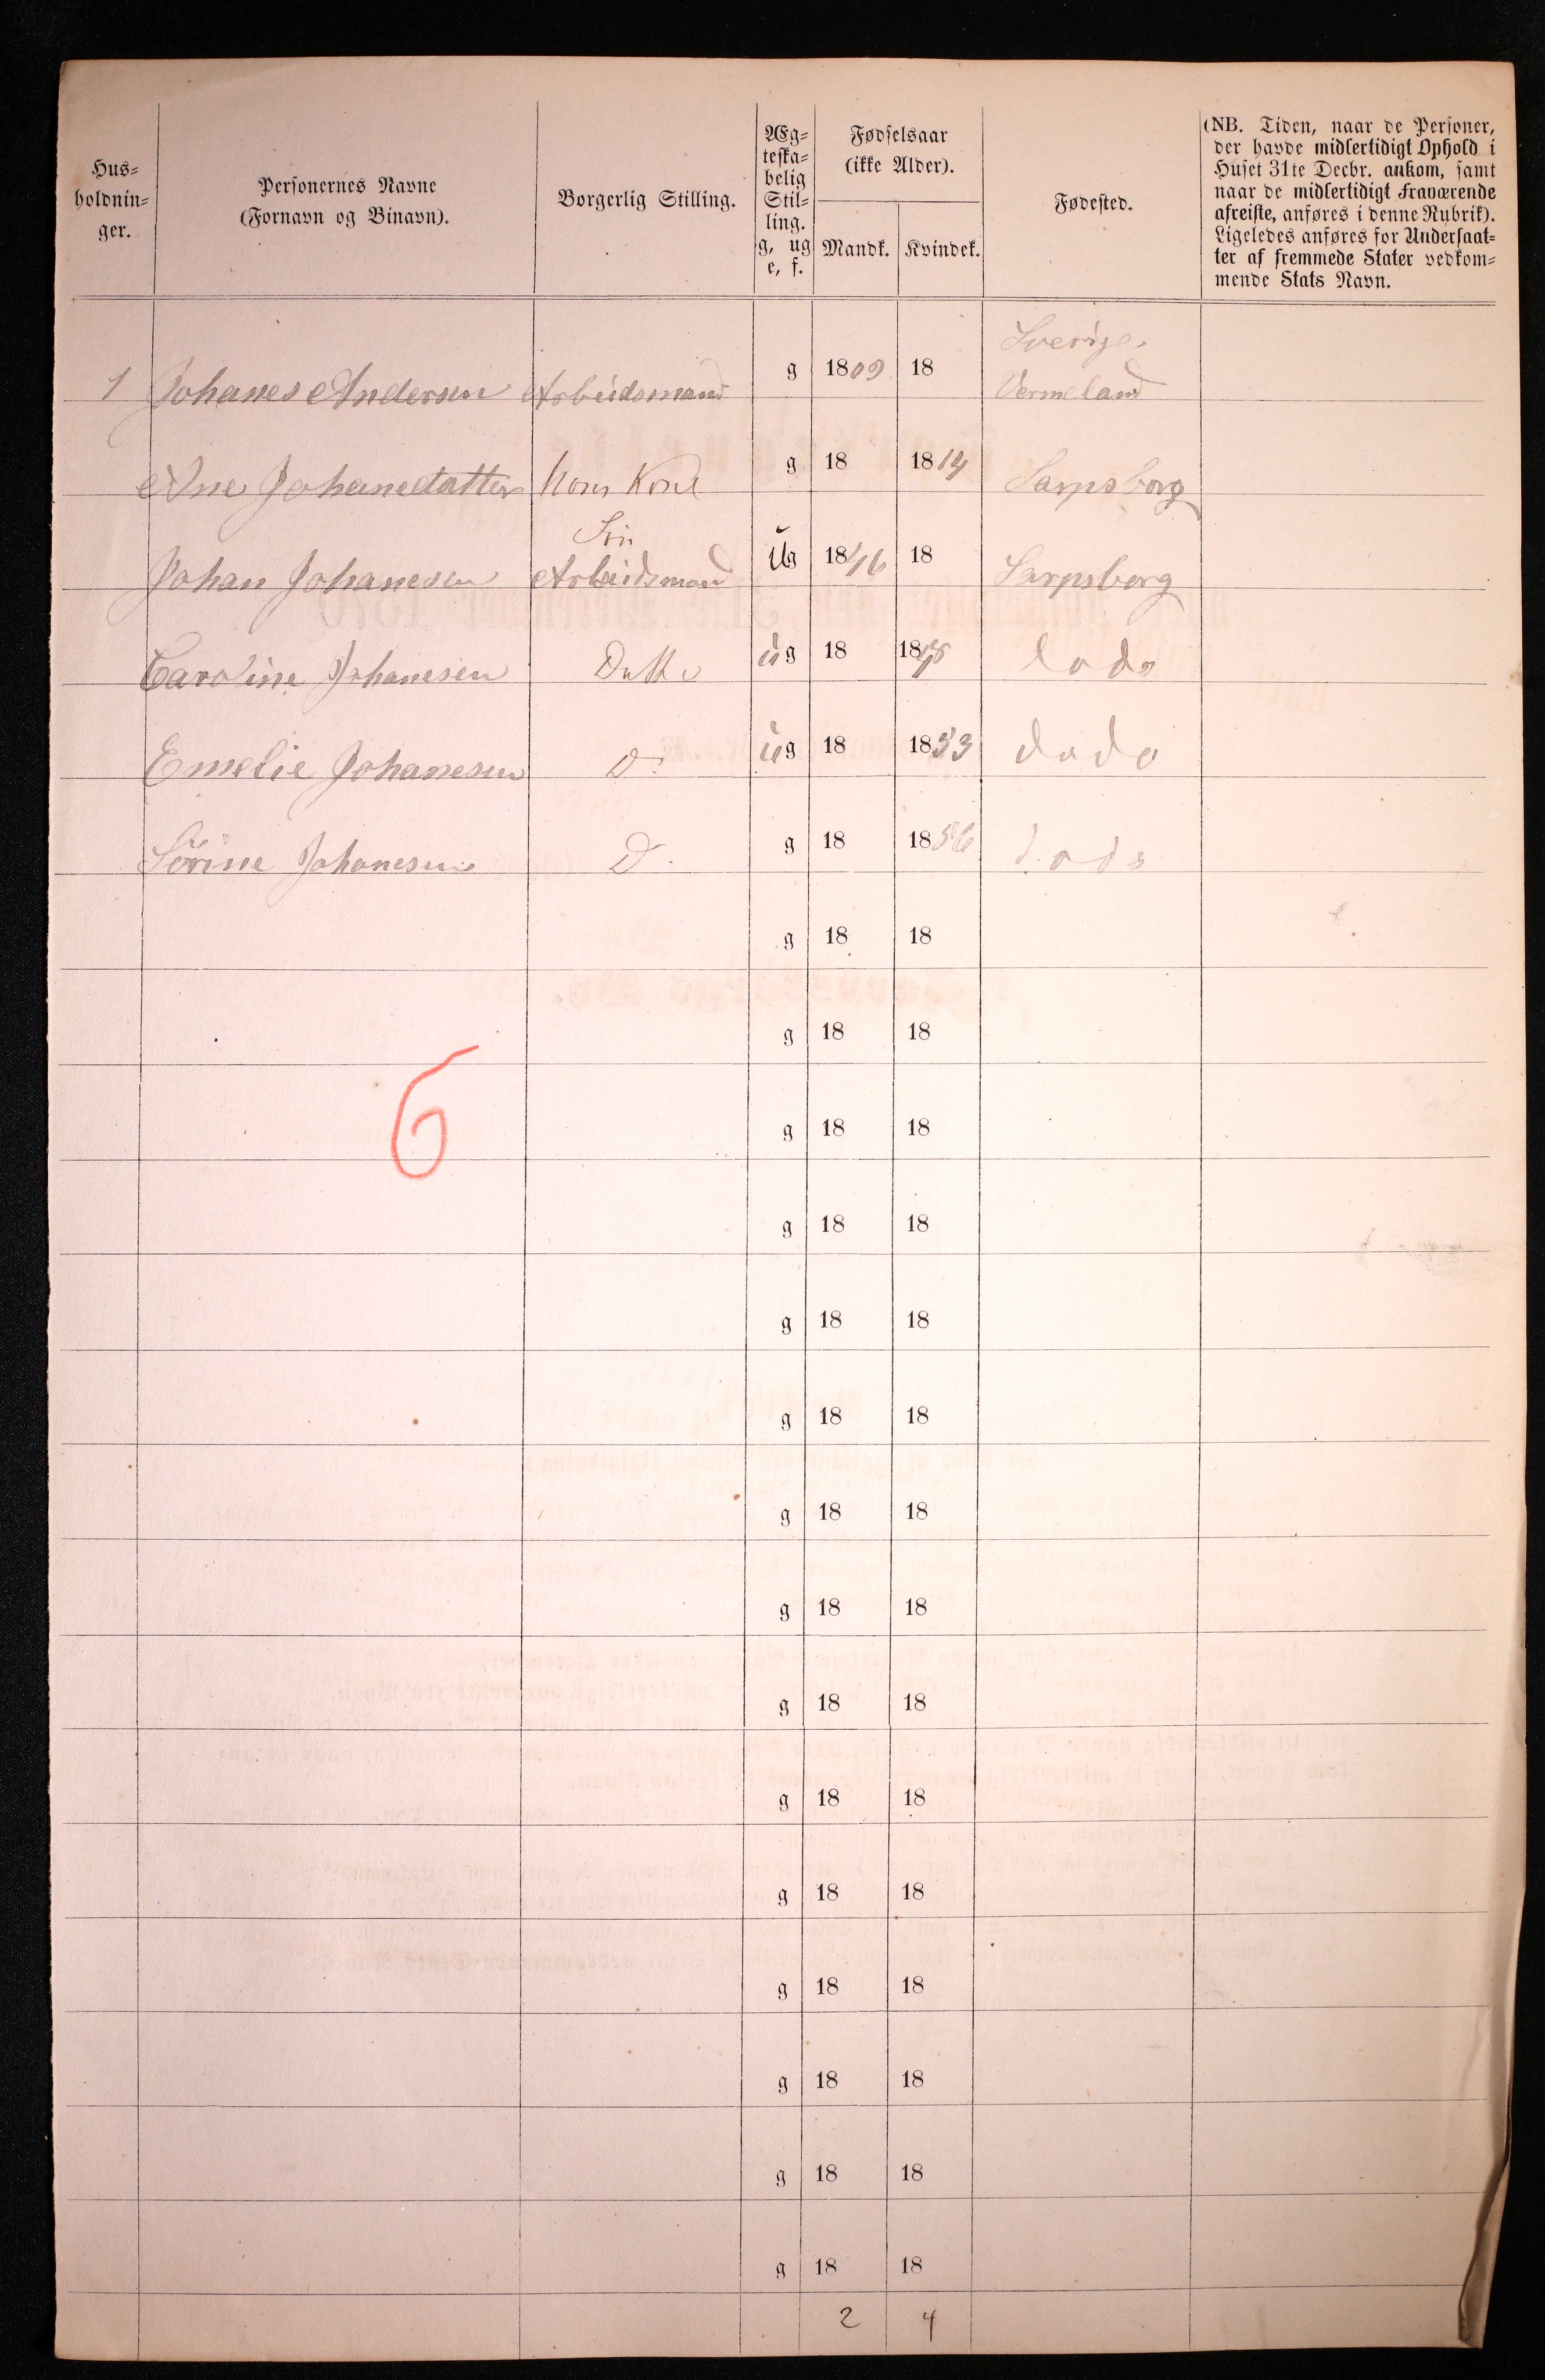 Hus=
holdnin=
ger.
Personernes Navne
(Fornavn og Binavn).
Borgerlig Stilling.
Æg=
teska=
belig
Stil=
ling.
g, ug
e, f.
Fødselsaar
(ikke Alder).
Mandk. Kvindek.
Fødested.
(NB. Tiden, naar de Personer,
der havde midlertidigt Ophold i
Huset 31te Decbr. ankom, samt
naar de midlertidigt fraværende
afreiste, anføres i denne Rubrik).
Ligeledes anføres for Undersaat=
ter af fremmede Stater vedkom=
mende Stats Navn.
Sverige.
1 Johanes Andersen Arbeidsmand g 1809 18 Vermeland
Ane Johanedatter Hans Kone g 18 1814 Sarpsborg
Sön
Johan Johanesen Arbeidsmand ug 1846 18 Sarpsborg
Caroline Johanesen Datte ug 18 18 dodo
Emelie Johanesen D. ug 18 1853 dodo
Sörine Johanesen D. g 18 1856 dodo
g 18 18
g 18 18
6
g 18 18
g 18 18
g 18 18
g 18 18
g 18 18
g 18 18
g 18 18
g 18 18
g 18 18
g 18 18
g 18 18
g 18 18
g 18 18
2 4